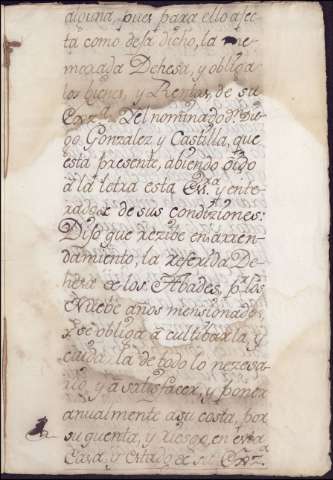 alguna, pues para ello afec
ta como deja dicho, la me
morada Dehesa, y obliga
los bienes, y Rentas, de su
Exzª. Del nominado Dⁿ. Die
go Gonzalez y Castilla, que
está presente, abiendo oydo
á la letra esta Esrª. y ente
rado de sus condiziones:
Dijo que rezibe en arren
damiento, la referida De
hesa de los Abades, p.r los
Nuebe años menzionados,
y se obliga á cultibarla, y
cuidarla de todo lo nezesa
rio, y á satisfacer, y poner
anualmente a su costa, por
su quenta, y riesgo, en esta
Casa, y Estado de su Exzª.